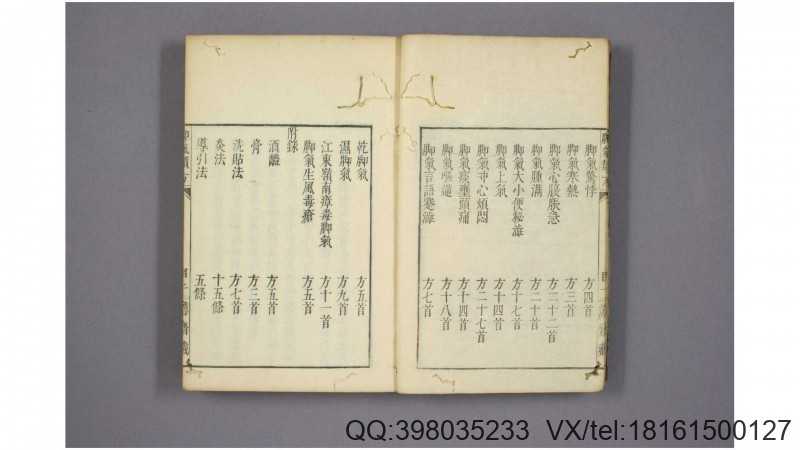 脚氣驚悸 方四首
脚氣寒熱 方三首
脚氣心腹脹急 方二十二首
脚氣腫滿 方二十首
脚氣大小便秘澁 方十七首
脚氣上氣 方十四首
脚氣冲心煩悶 方二十七首
脚氣痰壅頭痛 方十四首
脚氣嘔逆 方十八首
脚氣言語蹇澁 方七首
乾脚氣 方五首
濕脚氣 方九首
江東嶺南瘴毒脚氣 方十一首
脚氣生風毒瘡 方五首
附錄
酒醴 方五首
膏 方三首
洗貼法 方七首
灸法 十五條
導引法 五條
QQ:398035233 VX/tel:18161500127